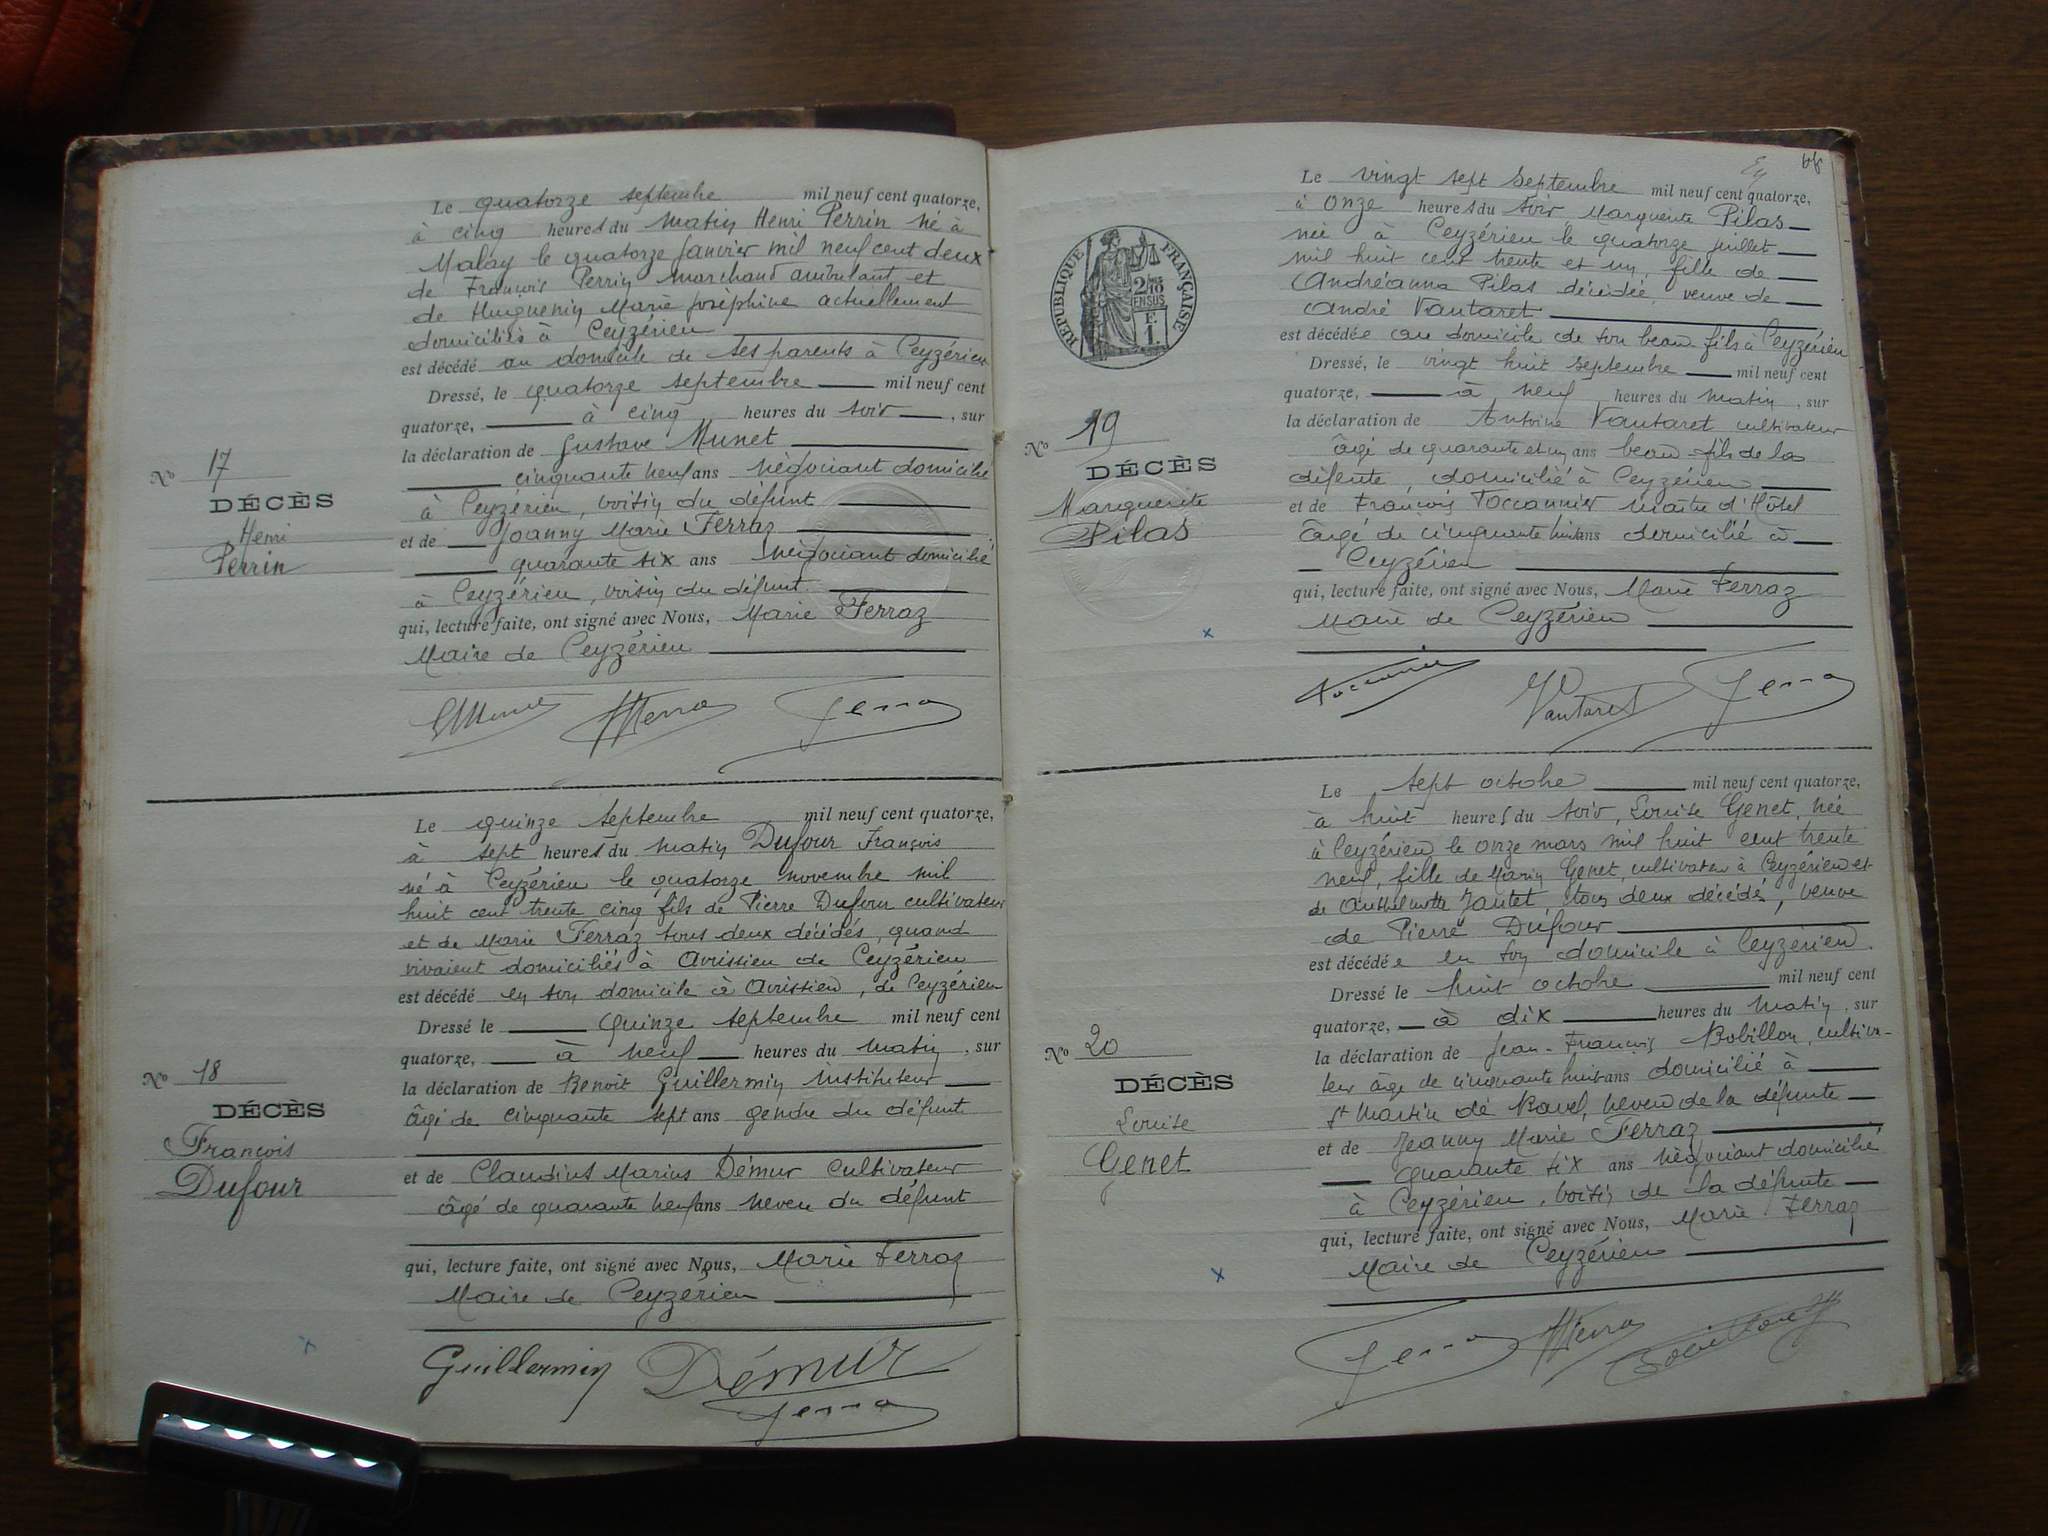 Le quatorze septembre mil neuf cent quatorze,
à cinq heures du matin Henri Perrin né à
Malay le quatorze janvier mil neuf cent deux
de François Perrin marchand ambulant et
de Huguenin Marie Joséphine actuellement
domiciliés à Ceyzérieu
est décédé au domicile de ses parents à Ceyzérieu
Dressé, le quatorze septembre mil neuf cent
quatorze, à cinq heures du soir, sur
la déclaration de Gustave Munet
cinquante neuf ans négociant domicilié
à Ceyzérieu, voisin du défunt
et de Joanny Marie Ferraz
quarante six ans négociant domicilié
à Ceyzérieu, voisin du défunt.
qui, lecture faite, ont signé avec Nous, Marie Ferraz
Maire de Ceyzérieu
No 17
DÉCÈS
Henri
Perrin
Le quinze septembre mil neuf cent quatorze,
à sept heures du matin Dufour François
né à Ceyzérieu le quatorze novembre mil
huit cent trente cinq fils de Pierre Dufour cultivateur
et de Marie Ferraz tous deux décédés, quand
vivaient domiciliés à Avrissieu de Ceyzérieu
est décédé en son domicile à Avrissieu, de Ceyzérieu
Dressé le quinze septembre mil neuf cent
quatorze, à neuf heures du matin, sur
la déclaration de Benoit Guillermin instituteur
âgé de cinquante sept ans gendre du défunt
et de Claudius Marius Démur cultivateur
âgé de quarante neuf ans neveu du défunt
qui, lecture faite, ont signé avec Nous, Marie Ferraz
Maire de Ceyzérieu
Guillermin Démur
Ferra
No 18
DÉCÈS
François
Dufour
Le vingt sept septembre mil neuf cent quatorze,
à onze heures du soir Marguerite Pilas
née à Ceyzérieu le quatorze juillet
mil huit cent trente et un, fille de
Andréanna Pilas décédée, veuve de
André Vautaret
est décédée au domicile de son beau-fils à Ceyzérieu
Dressé, le vingt huit septembre mil neuf cent
quatorze, à neuf heures du matin, sur
la déclaration de Antoine Vautaret cultivateur
âgé de quarante et un ans beau-fils de la
défunte, domicilié à Ceyzérieu
et de François Toccannier maître d'Hôtel
âgé de cinquante huit ans domicilié à
Ceyzérieu
qui, lecture faite, ont signé avec Nous, Marie Ferraz
Maire de Ceyzérieu
Vautaret Ferra
RÉPUBLIQUE FRANÇAISE
No 19
DÉCÈS
Marguerite
Pilas
Le sept octobre mil neuf cent quatorze,
à huit heures du soir, Louise Genet, née
à Ceyzérieu le onze mars mil huit cent trente
neuf, fille de Marin Genet, cultivateur à Ceyzérieu et
de Anthelmette Jautet, tous deux décédés, veuve
de Pierre Dufour
est décédée en son domicile à Ceyzérieu.
Dressé le huit octobre mil neuf cent
quatorze, à dix heures du matin, sur
la déclaration de Jean-François Bobillon, cultiva-
teur âgé de cinquante huit ans domicilié à
St Martin de Bavel, neveu de la défunte
et de Jeanny Marie Ferraz
quarante six ans négociant domicilié
à Ceyzérieu, voisin de la défunte
qui, lecture faite, ont signé avec Nous, Marie Ferraz
Maire de Ceyzérieu
No 20
DÉCÈS
Louise
Genet